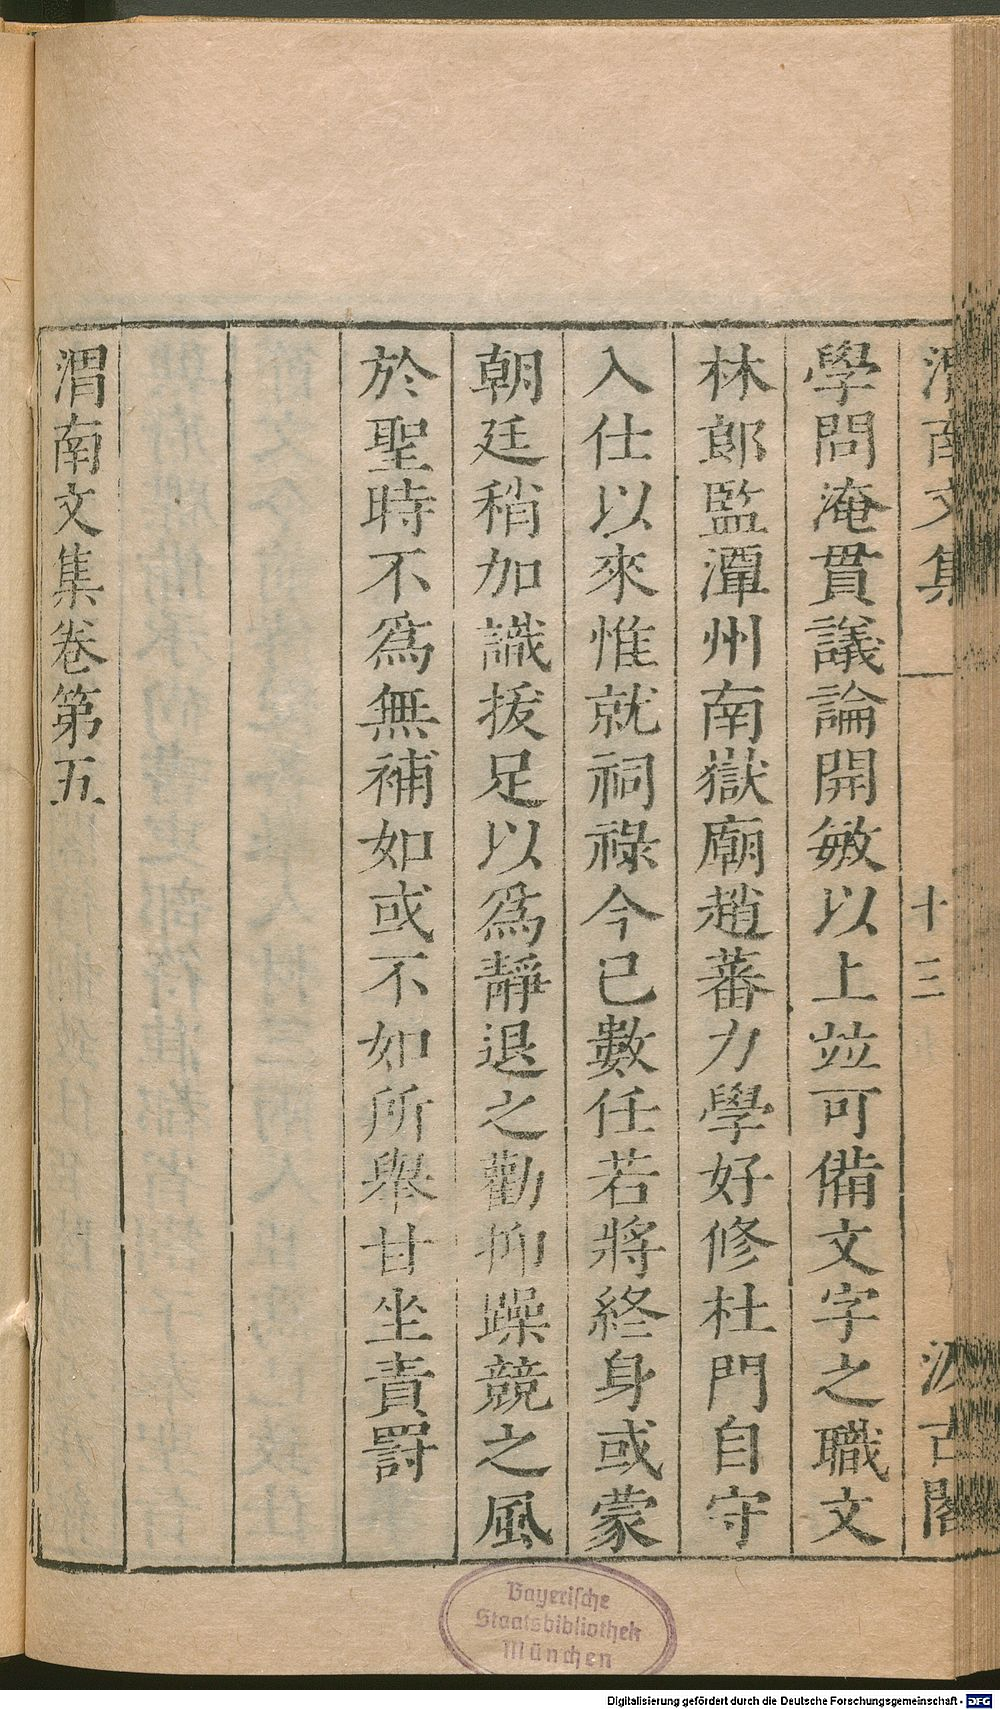 渭南文集 十三 汲古閣
學問淹貫議論開敏以上並可備文字之職文
林郎監潭州南嶽廟趙蕃力學好修杜門自守
入仕以來惟就祠祿今已數任若將終身或蒙
朝廷稍加識拔足以爲靜退之勸抑躁競之風
於聖時不爲無補如或不如所舉甘坐責罰
渭南文集卷第五
Bayerische
Staatsbibliothek
München
Digitalisierung gefördert durch die Deutsche Forschungsgemeinschaft - DFG